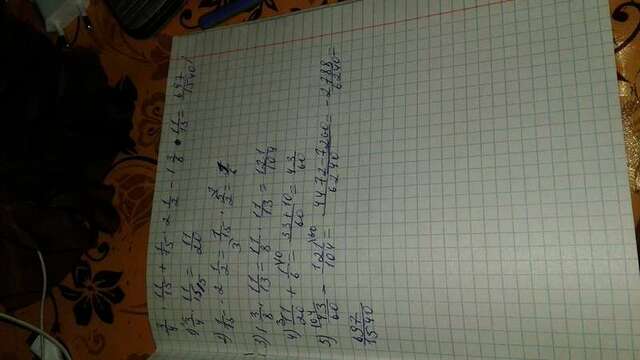 3/4 · 11/15 + 1/15 · 2 1/2 - 1 3/8 · 11/13 = 697/1540
1) 3/4 · 11/15 = 11/20
2) 1/15 · 2 1/2 = 1/15 · 5/2 = 1/6
3) 1 3/8 · 11/13 = 11/8 · 11/13 = 121/104
4) 11/20 + 1/6 = 33+10/60 = 43/60
5) 43/60 - 121/104 = 4472-7260/6240 = -2788/6240 =
697/1540